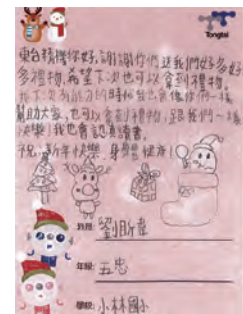 Tongtai
東台精機你好,謝謝你們送我們好多好
多禮物,希望下次也可以拿到禮物。
我下次有能力的時候我也會像你們一樣
幫助大家,也可以拿到禮物,跟我們一樣
快樂!我也會認真讀書。
祝:新年快樂,身體健康!
姓名:劉昕韋
年級:五忠
學校:小林國小